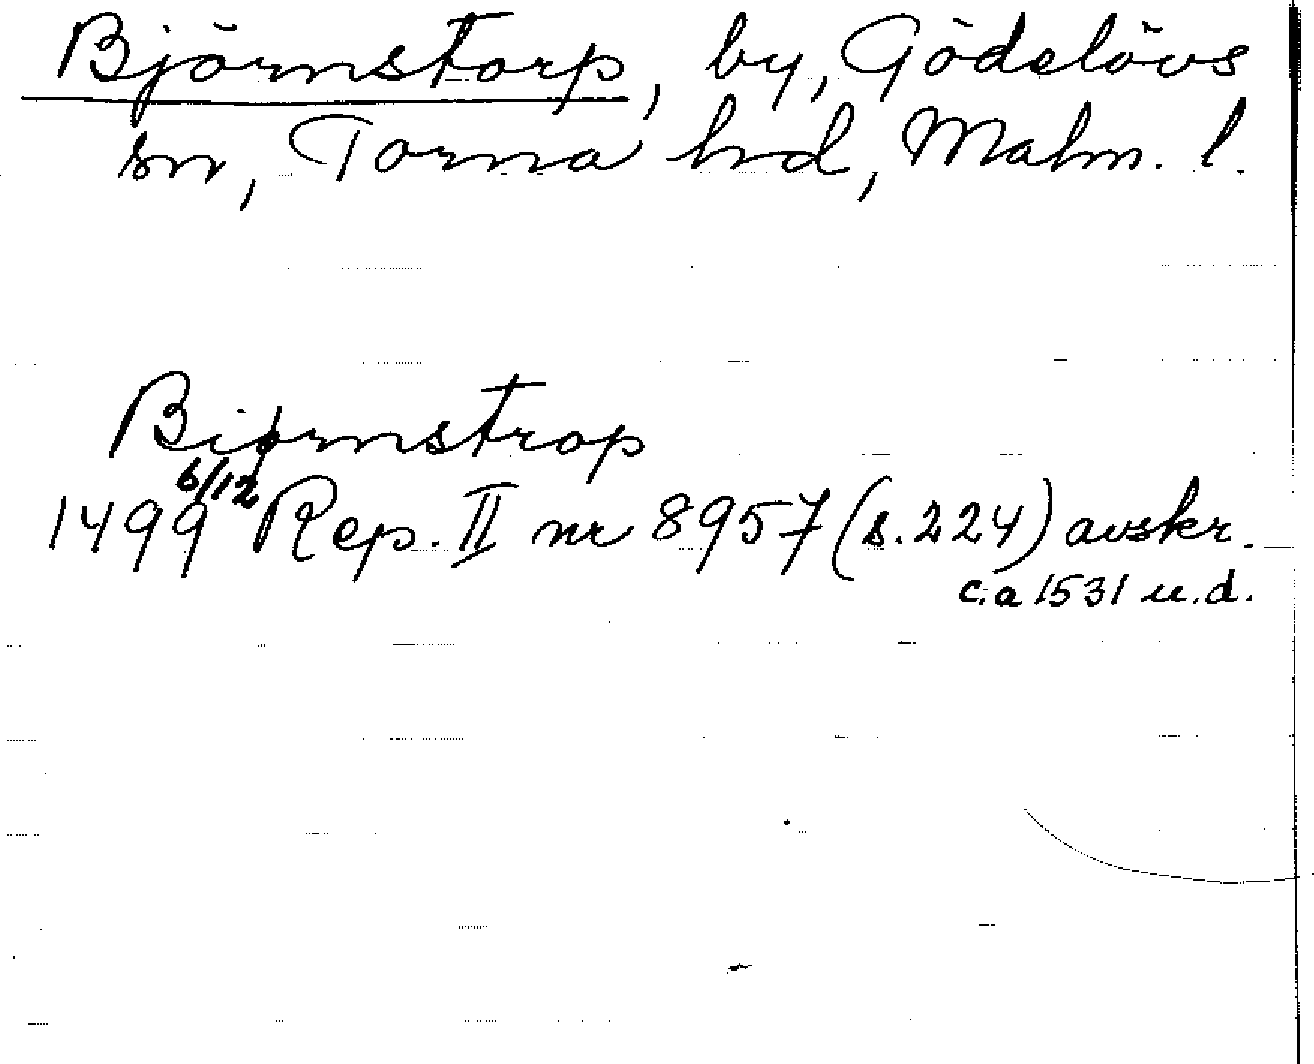 Björnstorp, by, Gödelövs
sn, Torna hrd, Malm. l.
Biørnstrop
1499 6/12 Rep. II nr 8957 (s. 224) avskr.
c.a 1531 u.d.